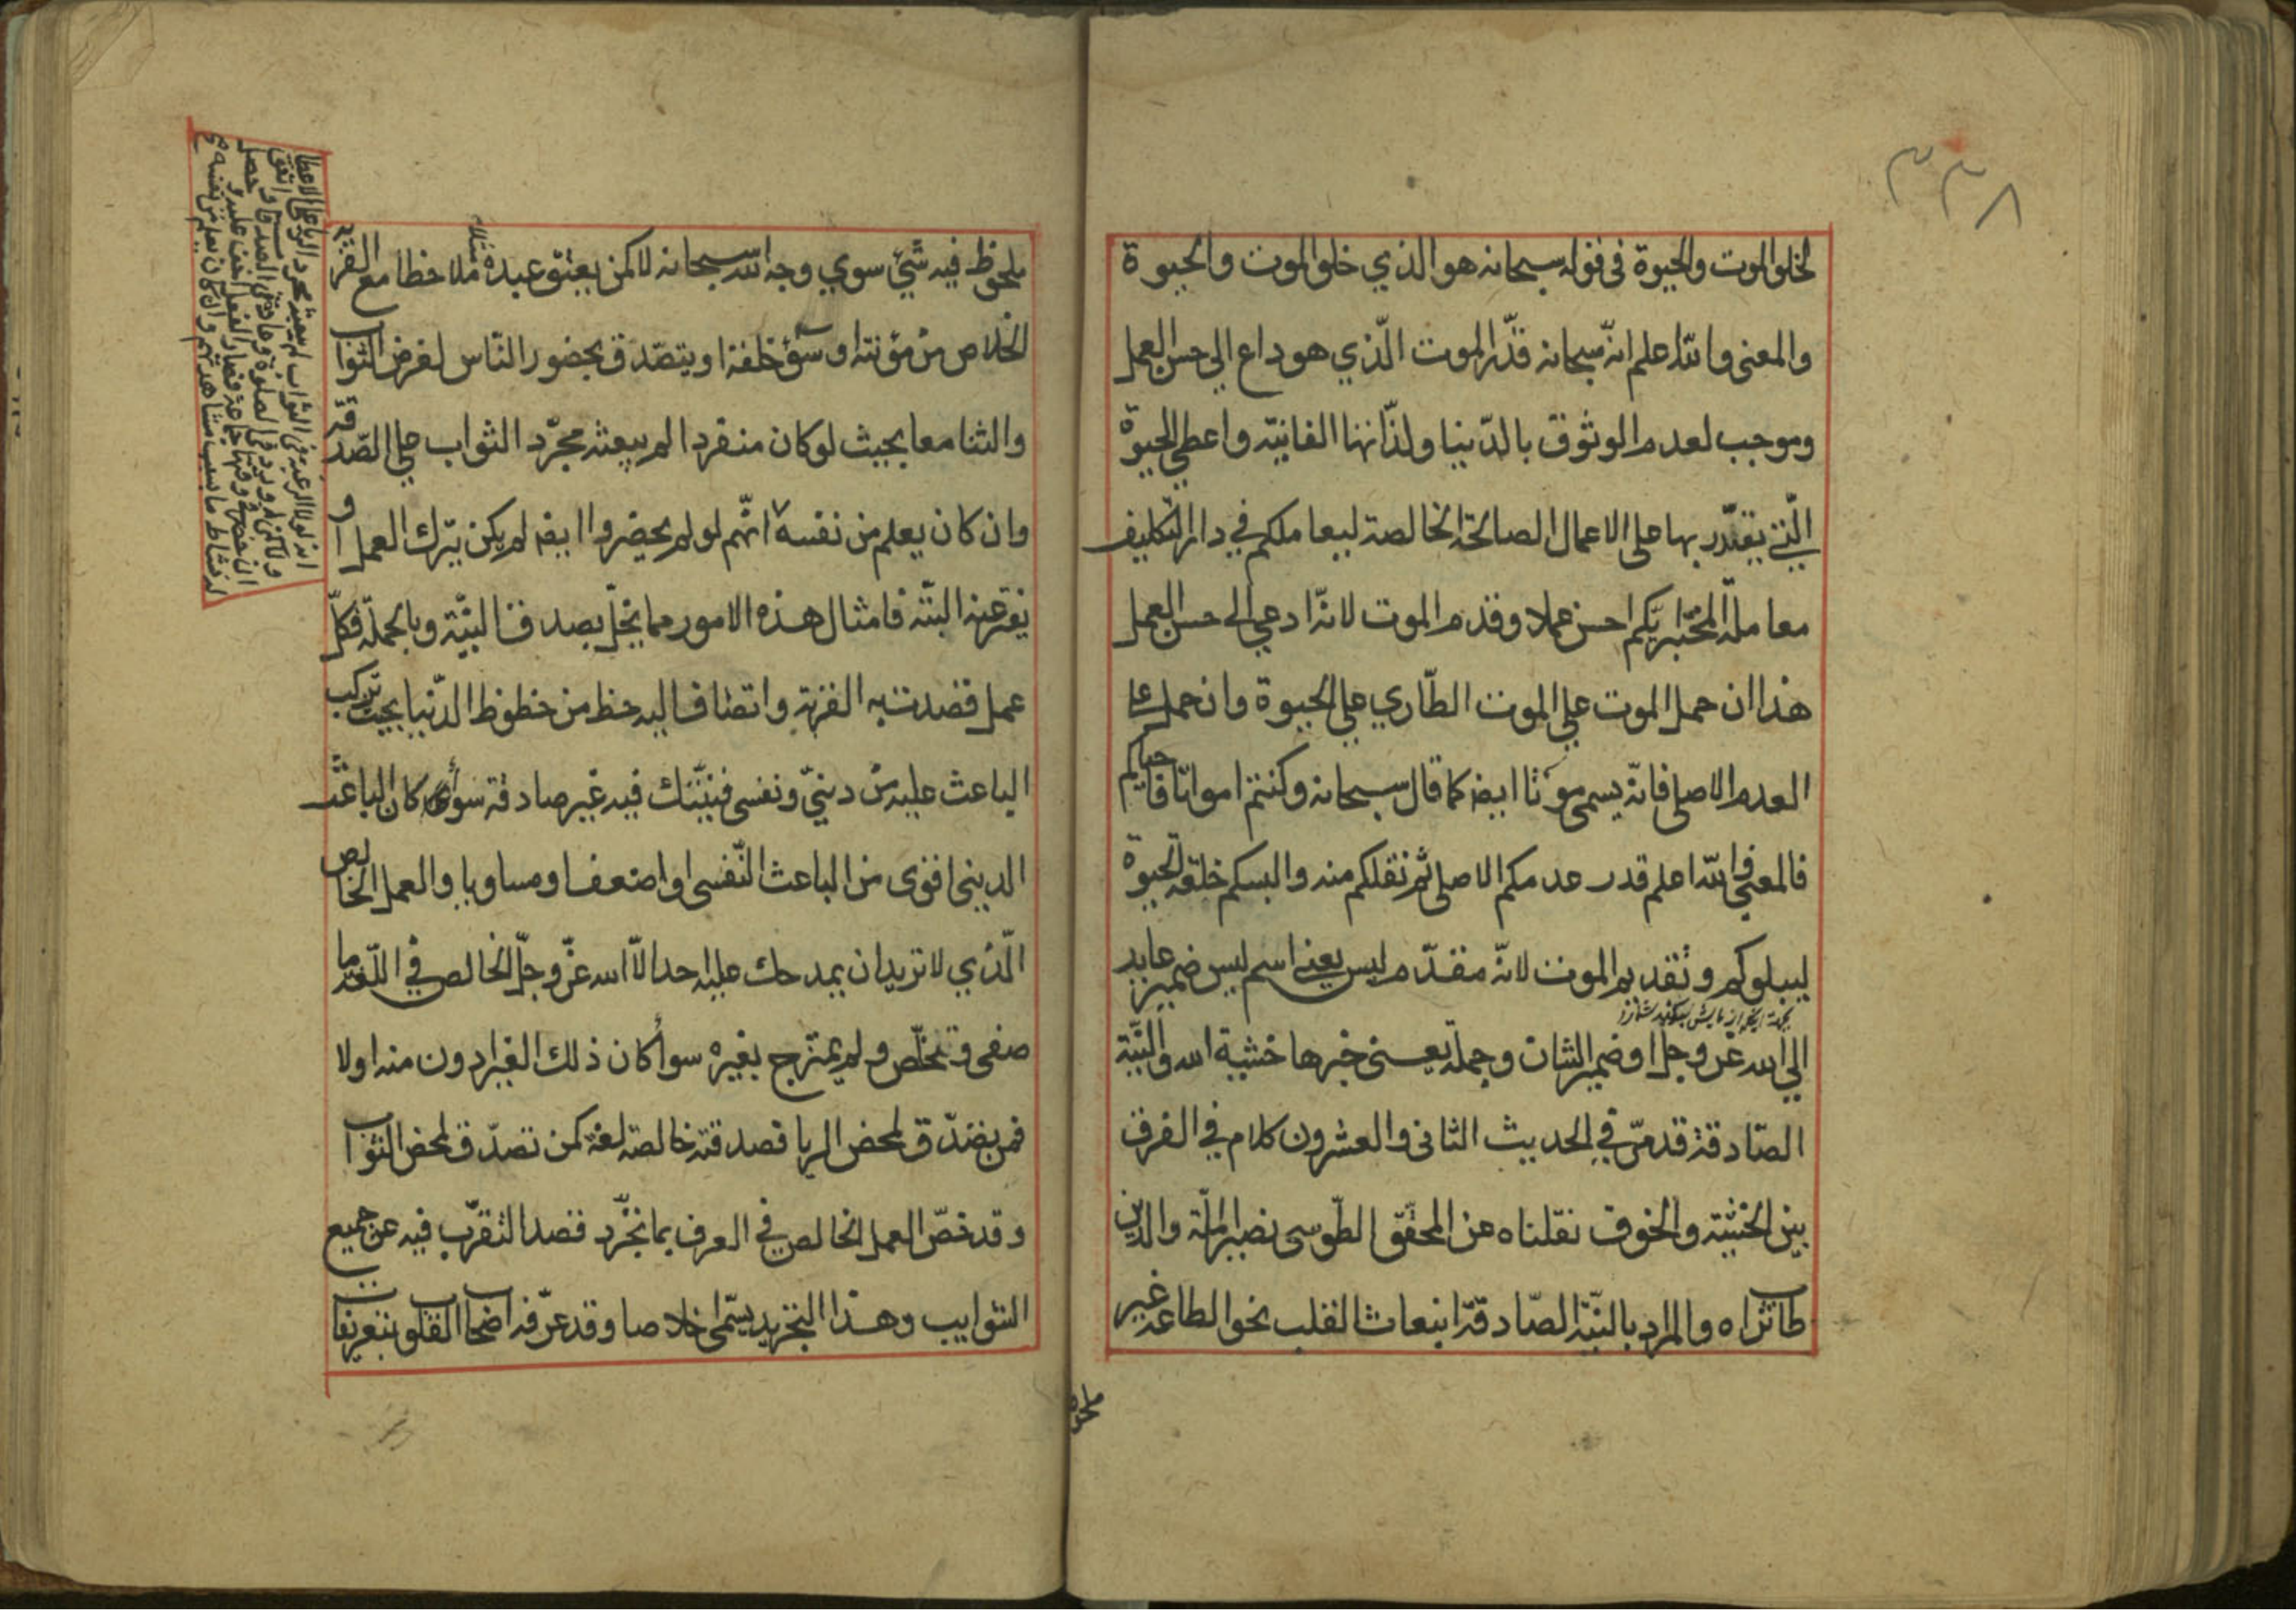 ٣٣٨
لخلق الموت والحيوة فى قوله سبحانه هو الذي خلق الموت والحيوة
والمعنى والله اعلم انه سبحانه قدّر الموت الّذي هو داع الى حسن العمل
وموجب لعدم الوثوق بالدّنيا ولذّاتها الفانية واعطى الحيوة
الّتي يقتدر بها على الاعمال الصالحة الخالصة ليعاملكم في دار التكليف
معاملة المختبر ايّكم احسن عملا وقدم الموت لانّه ادعى الى حسن العمل
هذا ان حمل الموت على الموت الطّاري على الحيوة وان حمل على
العدم الاصلى فانّه يسمى موتا ايضا كما قال سبحانه وكنتم امواتا فاحياكم
فالمعنى والله اعلم قدر عدمكم الاصلى ثم نقلكم منه والبسكم خلقة الحيوة
ليبلوكم وتقديم الموت لانّه مقدّم ليس يعني اسم ليس ضمير عايد
الى الله عزّ وجل او ضمير الشان وجملة يعنى خبرها خشية الله والنّية
الصّادقة قد مرّ في الحديث الثانى والعشرون كلام في الفرق
بين الخشية والخوف نقلناه عن المحقّق الطّوسى نصير الملّة والدّين
طاب ثراه والمراد بالنّية الصّادقة انبعاث القلب نحو الطاعة غير
ملحوظ
ملحوظ فيه شئ سوي وجه الله سبحانه لا كمن يعتق عبده مثلا ملاحظا مع القربة
الخلاص من مؤنته او سوء خلقه او يتصّدق بحضور النّاس لغرض الثواب
والثنا معا بحيث لو كان منفردا لم يبعثه مجّرد الثواب على الصّدقة
وان كان يعلم من نفسه انّهم لو لم يحضروا ايضا لم يكن يترك العمل او
يفتر عنه البتّه فامثال هذه الامور مما يخلّ بصدق النيّة وبالجملة فكلّ
عمل قصدت به القربة واتضاف اليه حظ من حظوظ الدّنيا بحيث تركب
الباعث عليه من دينىّ ونفسى فنيّتك فيه غير صادقة سواء كان الباعث
الدينى اقوى من الباعث النّفسى او اضعف او مساويا والعمل الخالص
الّذي لا تريد ان يمدحك عليه احد الّا الله عزّ وجلّ الخالص في اللّغه ما
صفى وتخلّص ولم يمتزج بغيره سواء كان ذلك الغير ادون منه اولا
فمن تصّدق لمحض الريا فصدقته خالصة لغة كمن تصدّق لمحض الثواب
وقد خصّ العمل الخالص في العرف بما تجّرد قصد التقرّب فيه عن جميع
الشوايب وهذا التجريد يسّمى اخلاصا وقد عرّفه اصحاب القلوب بتعريفات